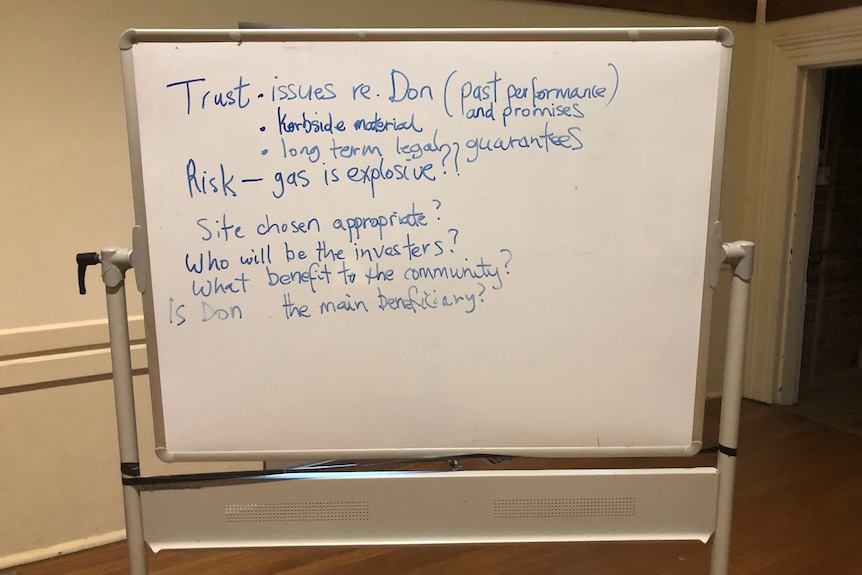 Trust • issues re. Don (past performance)
and promises
• Kerbside material
• long term legal guarantees
Risk – gas is explosive??
Site chosen appropriate?
Who will be the investers?
What benefit to the community?
Is Don the main beneficiary?